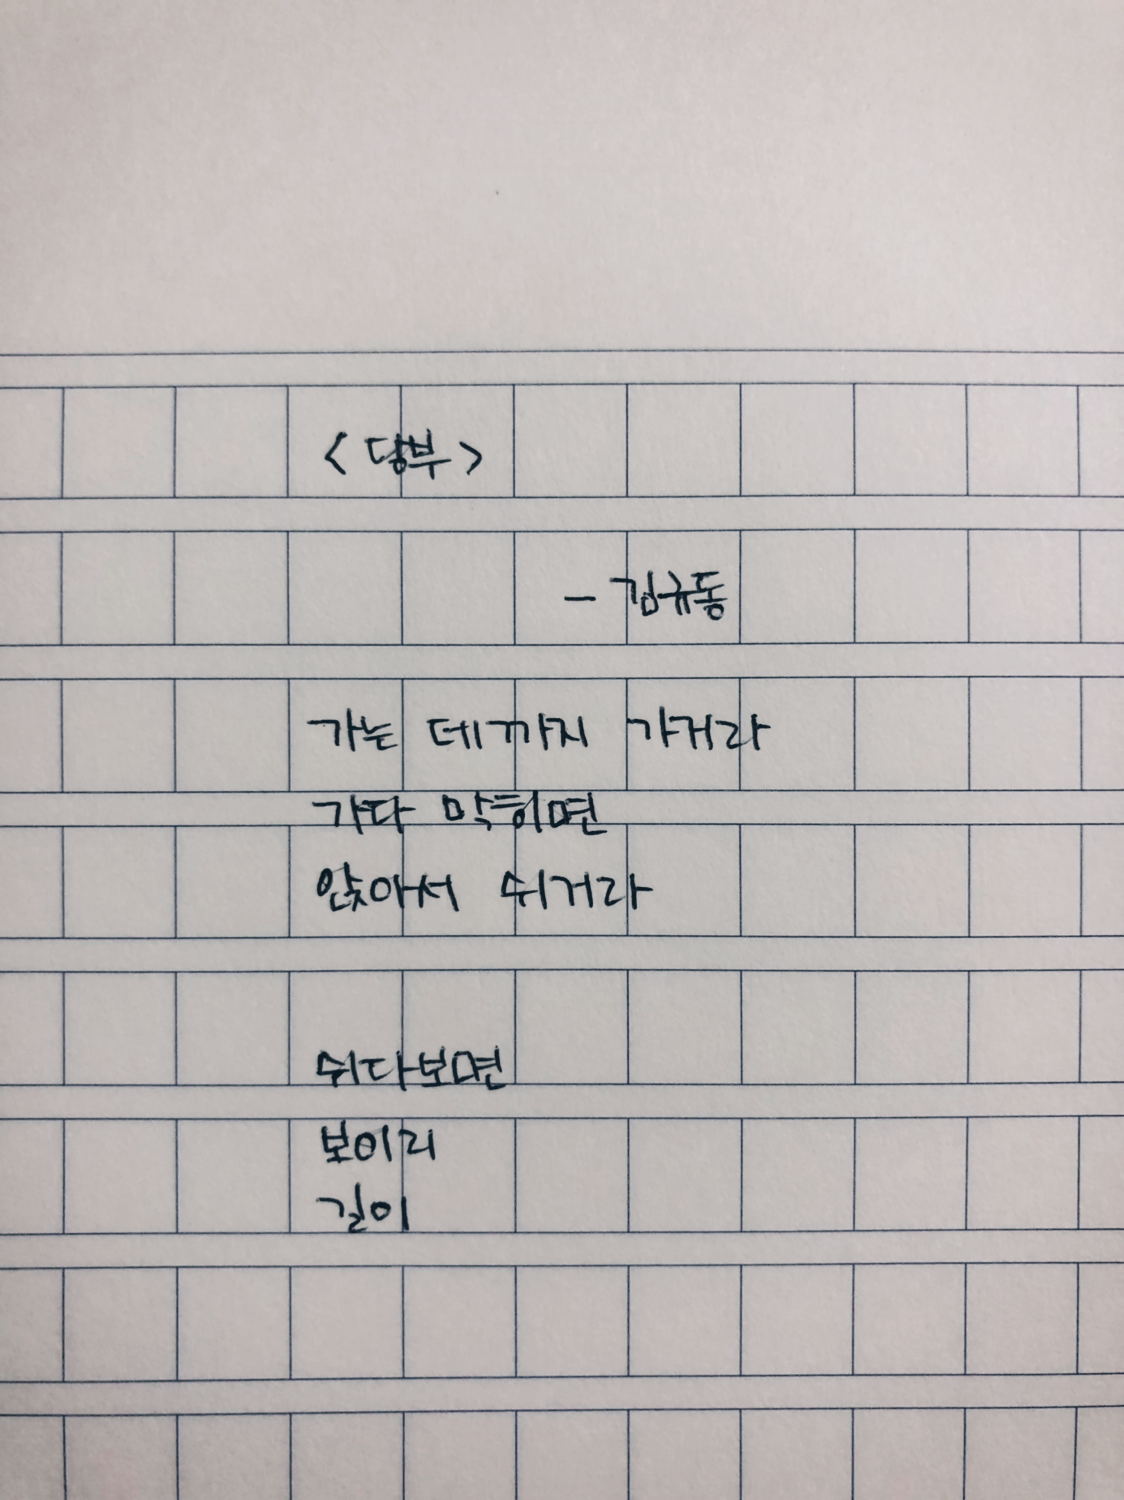 <당부>
- 김규동
가는 데까지 가거라
가다 막히면
앉아서 쉬거라
쉬다보면
보이리
길이